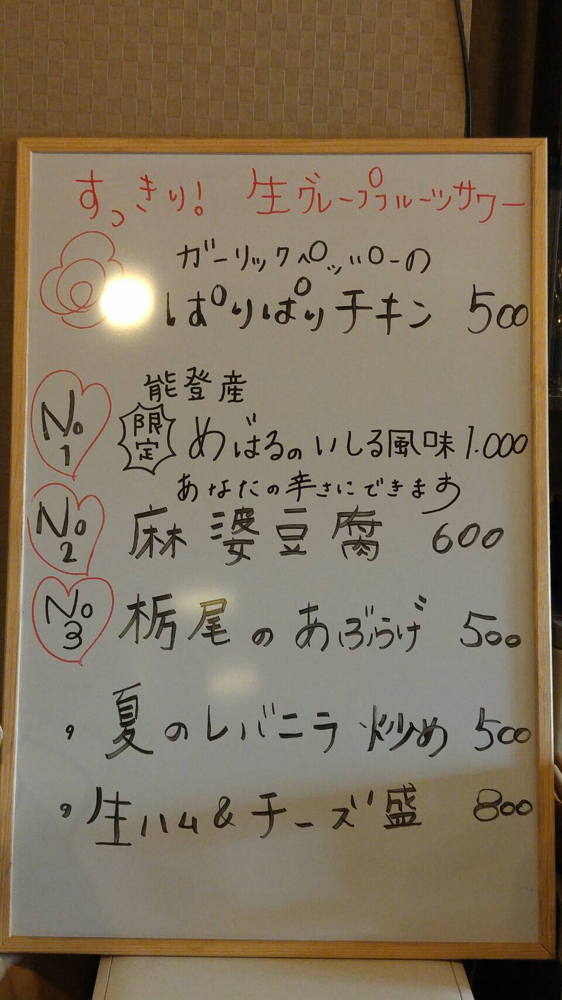 すっきり! 生グレープフルーツサワー
ガーリックペッパーの
ぱりぱりチキン 500
能登産
No1 限定 めばるのいしる風味 1.000
あなたの辛さにできます
No2 麻婆豆腐 600
No3 栃尾のあぶらげ 500
, 夏のレバニラ炒め 500
, 生ハム&チーズ盛 800